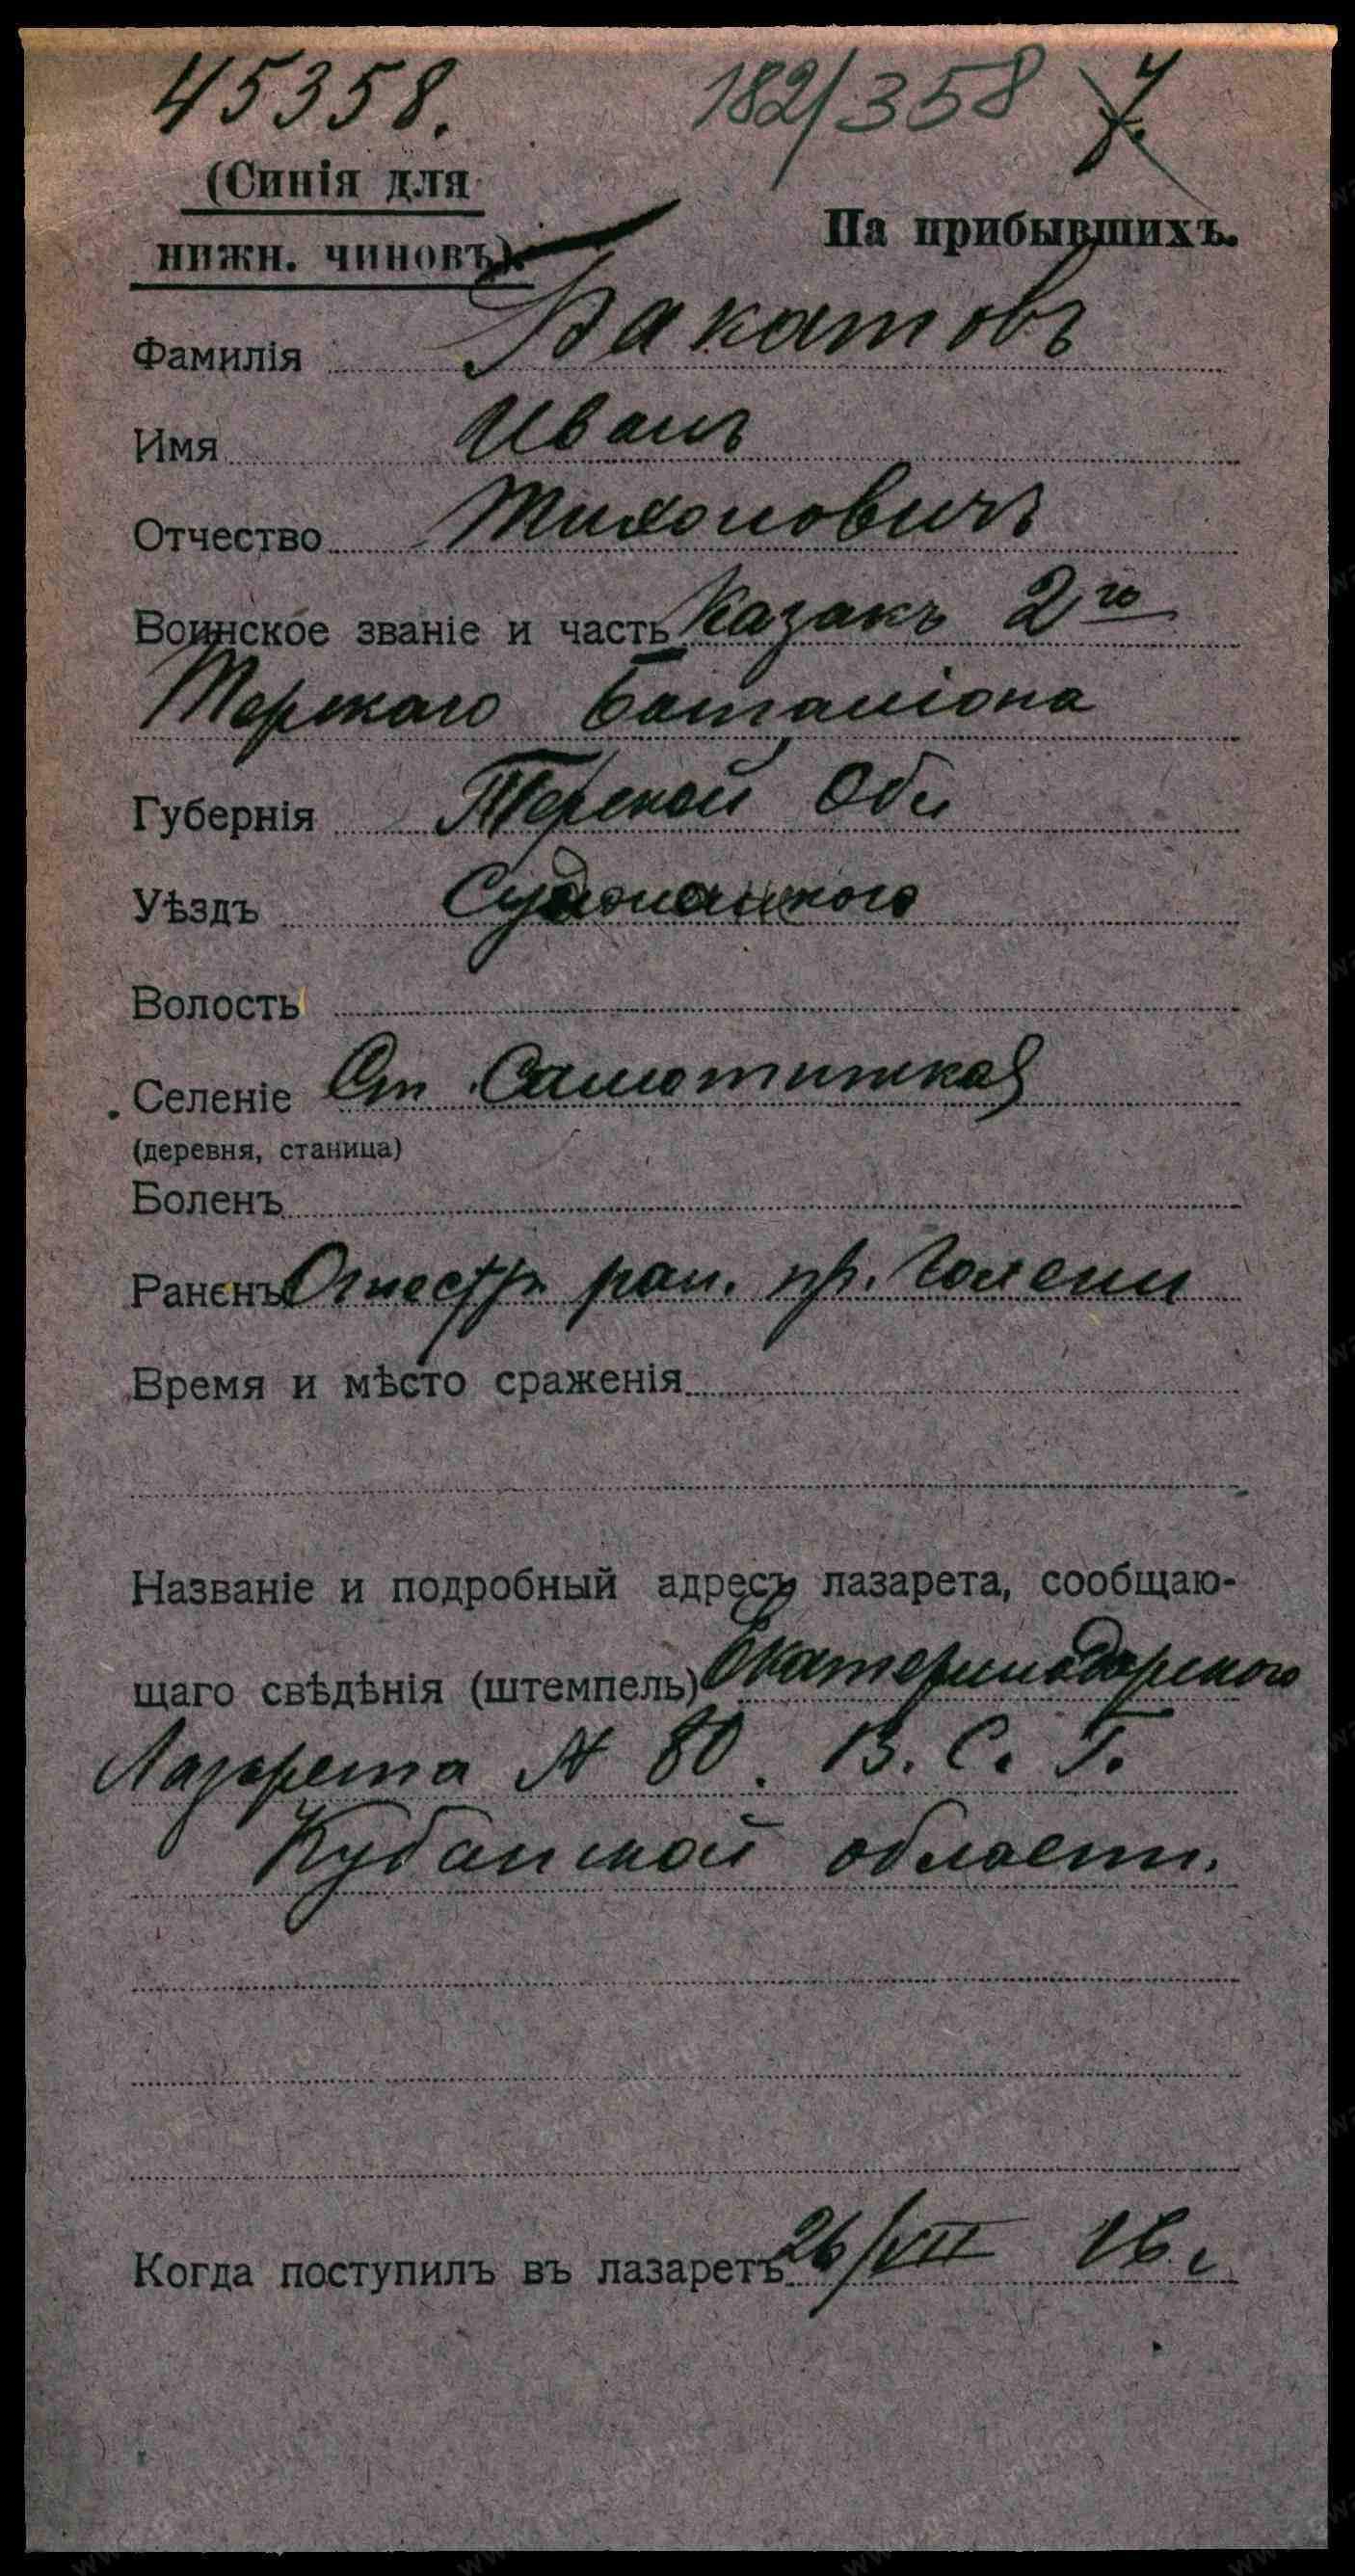 45358. 182/358
(Синія для
нижн. чиновъ).
На прибывшихъ.
Фамилія Бакатовъ
Имя Иванъ
Отчество Тихоновичъ
Воинское званіе и часть Казакъ 2го
Терскаго баталіона
Губернія Терской Обл
Уѣздъ
Волость
Селеніе Ст.
(деревня, станица)
Боленъ
Раненъ Огнестр. ран. пр. голени
Время и мѣсто сраженія
Названіе и подробный адресъ лазарета, сообщаю-
щаго свѣдѣнія (штемпель) Екатеринодарского
Лазарета № 80. В. С. Г.
Кубанской области.
Когда поступилъ въ лазаретъ 26/VII 16 г